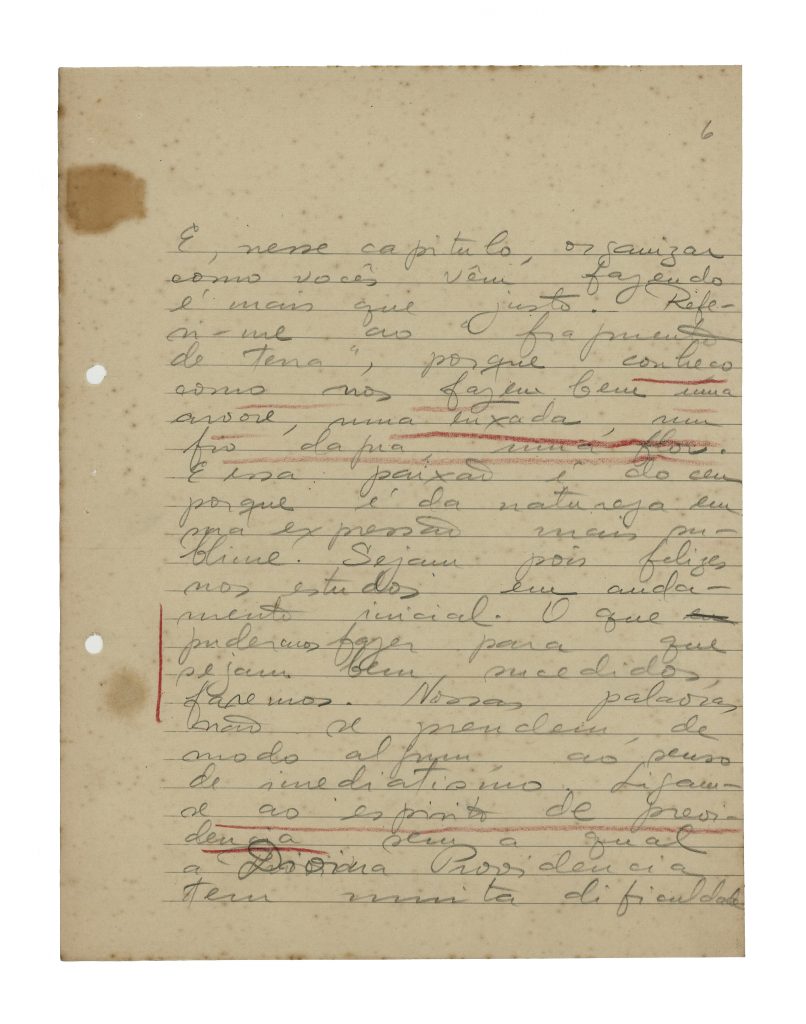 6
E, nesse capitulo, organizar
como vocês vêm fazendo
é mais que justo. Refe-
ri-me ao "fragmento
de terra", porque conheço
como nos fazem bem uma
arvore, uma enxada, um
fio dagua, uma flor.
E essa paixão é do ceu
porque é da natureza em
sua expressão mais su-
blime. Sejam pois felizes
nos estudos em anda-
mento inicial. O que
pudermos fazer para que
sejam bem sucedidos,
faremos. Nossas palavras
não se prendem, de
modo algum, ao senso
de imediatismo. Ligam-
se ao espirito de previ-
dencia sem a qual
a Divina Providencia
tem muita dificuldade